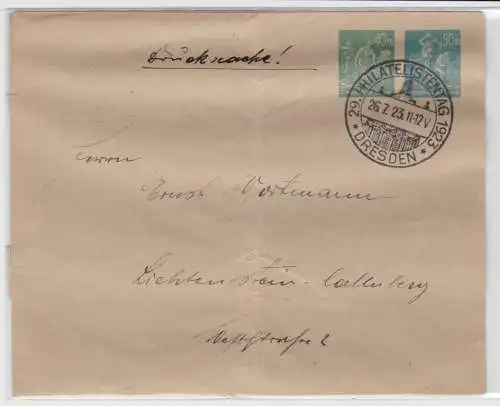 40
50
Drucksache!
29. PHILATELISTENTAG 1923
26.7.23.11-12V
* DRESDEN *
Herrn
Ernst Wortmann
Lichtenstein-Callnberg